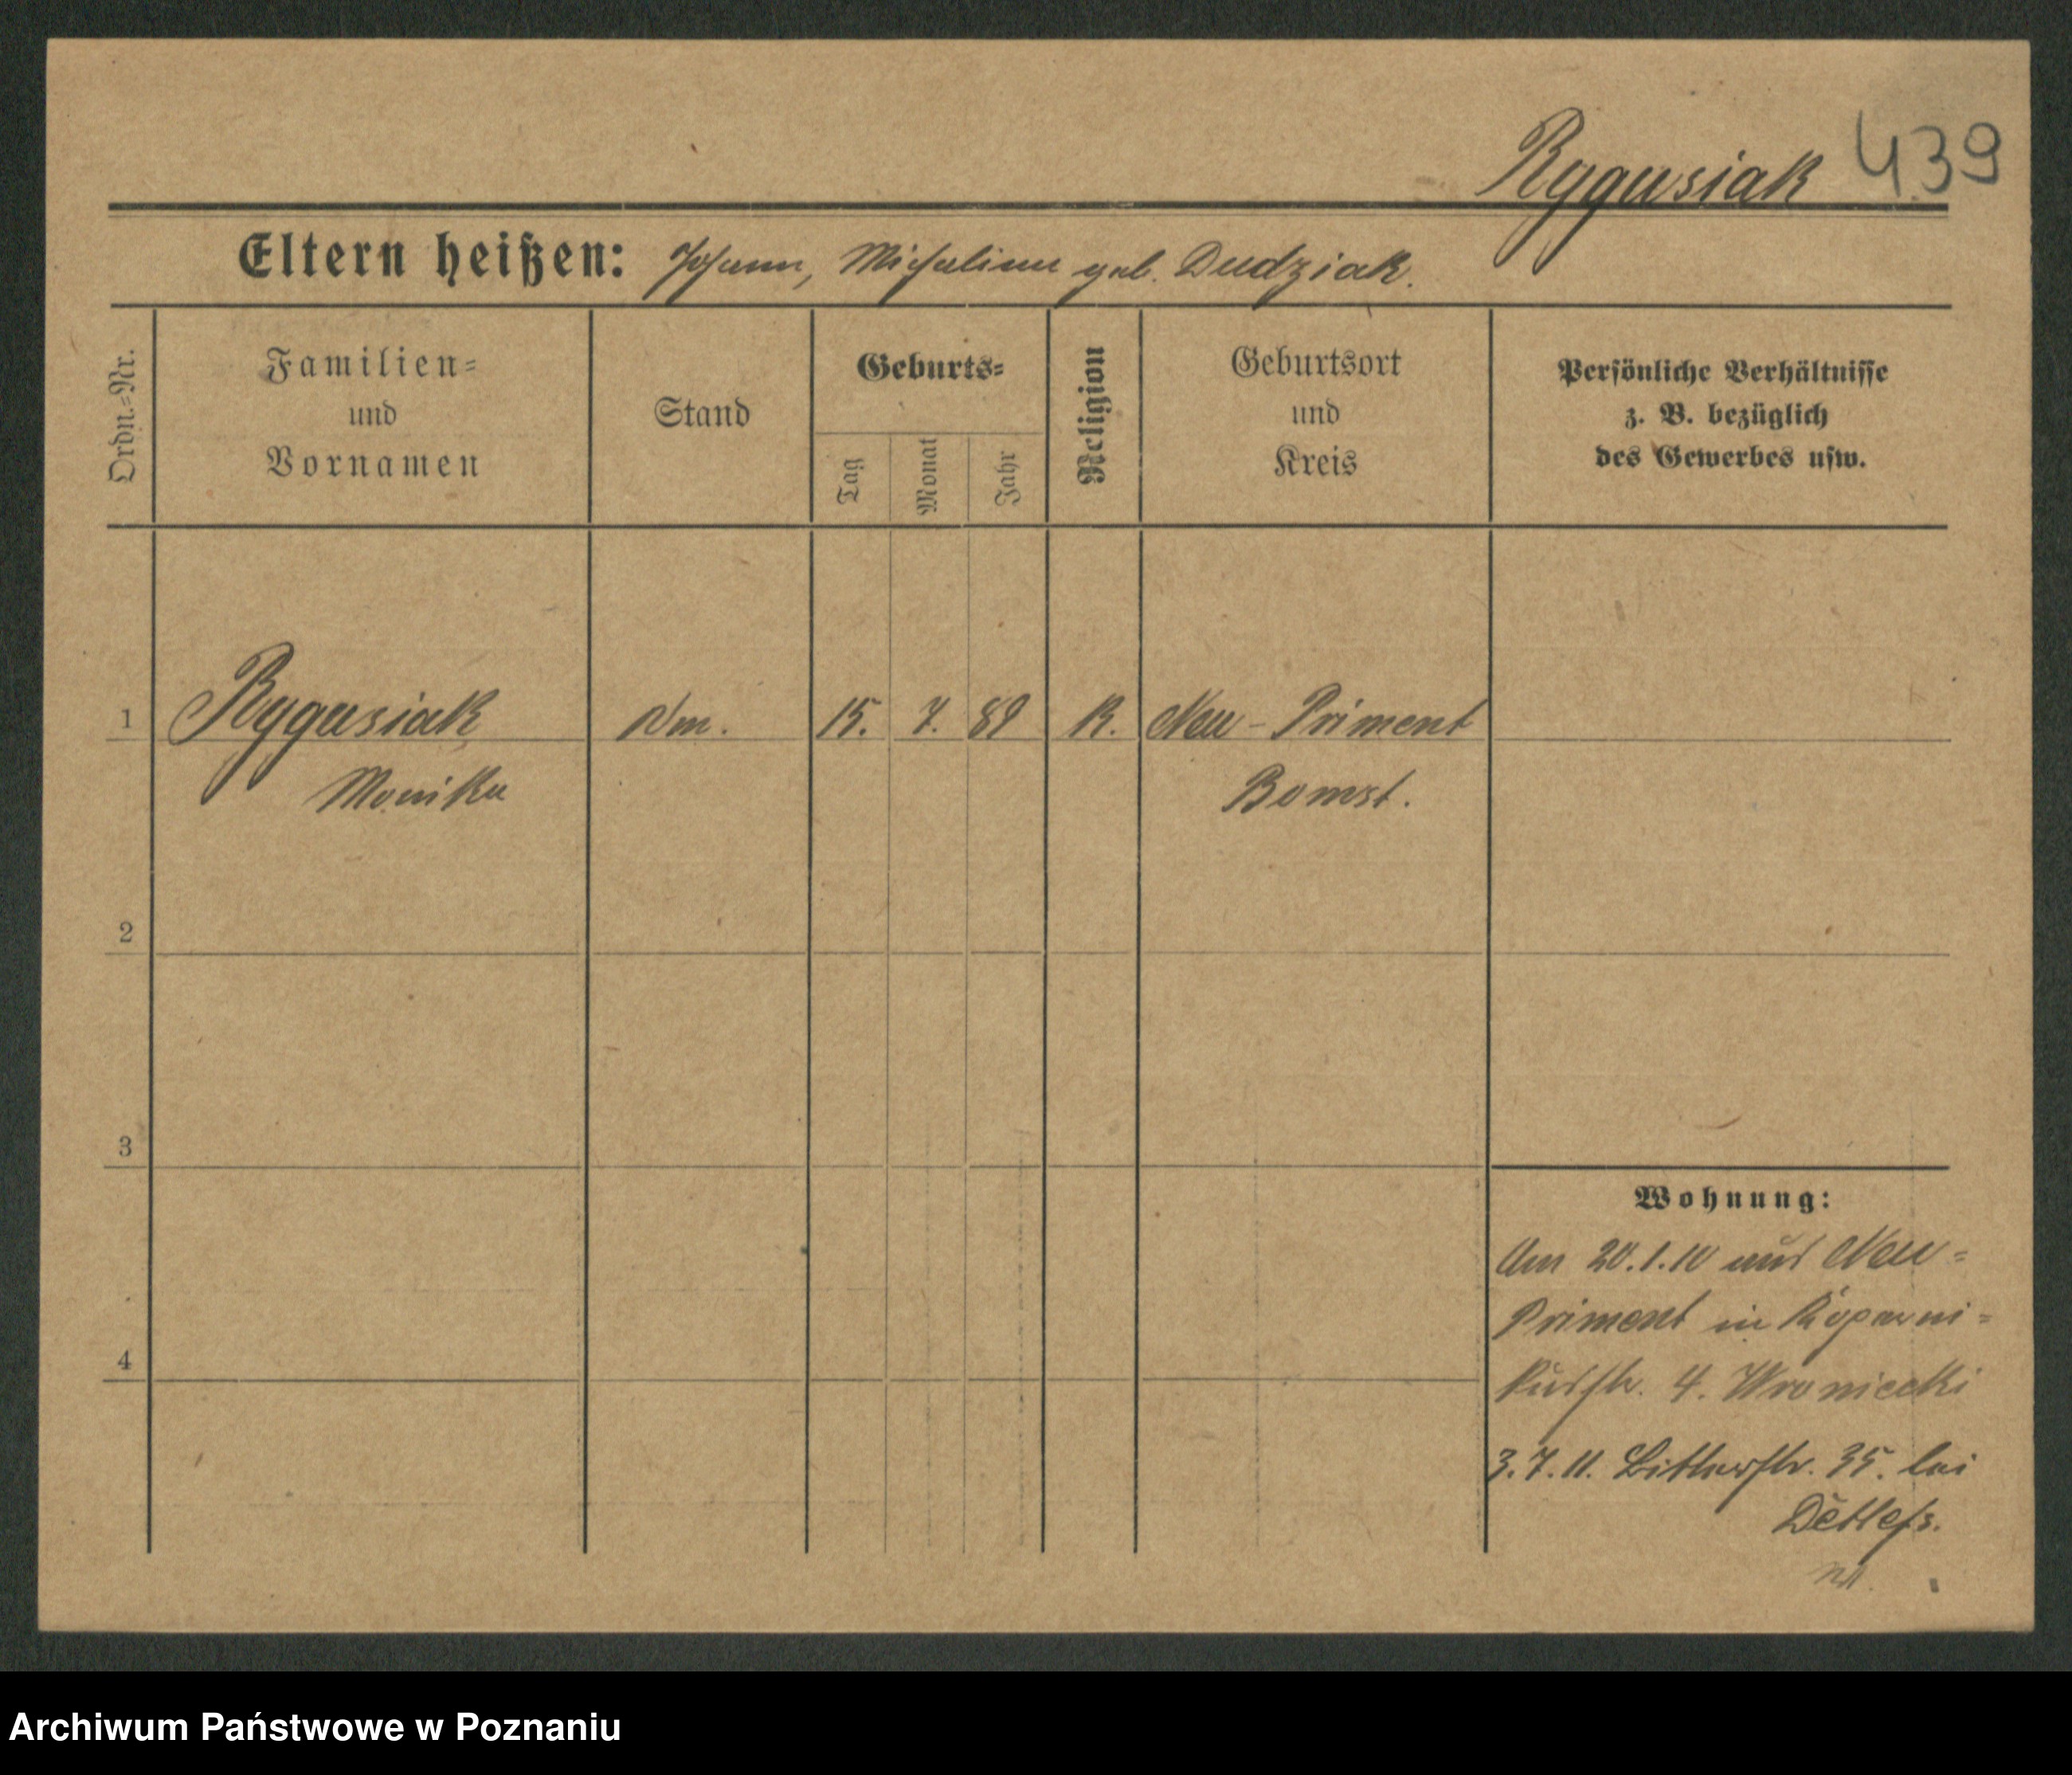 Rygusiak 439
Eltern heißen: Johann, Michalina geb. Dudziak.
Ordn.-Nr.
Familien-
und
Vornamen
Stand
Geburts-
Tag
Monat
Jahr
Religion
Geburtsort
und
Kreis
Persönliche Verhältnisse
z. B. bezüglich
des Gewerbes usw.
1 Rygusiak 15. 7. 89 K. Neu-Priment
Monika Bomst.
2
3
4
Wohnung:
Am 20.1.10 aus Neu-
Priment in Koperni-
kusstr. 4. Wroniecki
3.7.11. Bitterstr. 35. bei
Detlefs.
Archiwum Państwowe w Poznaniu